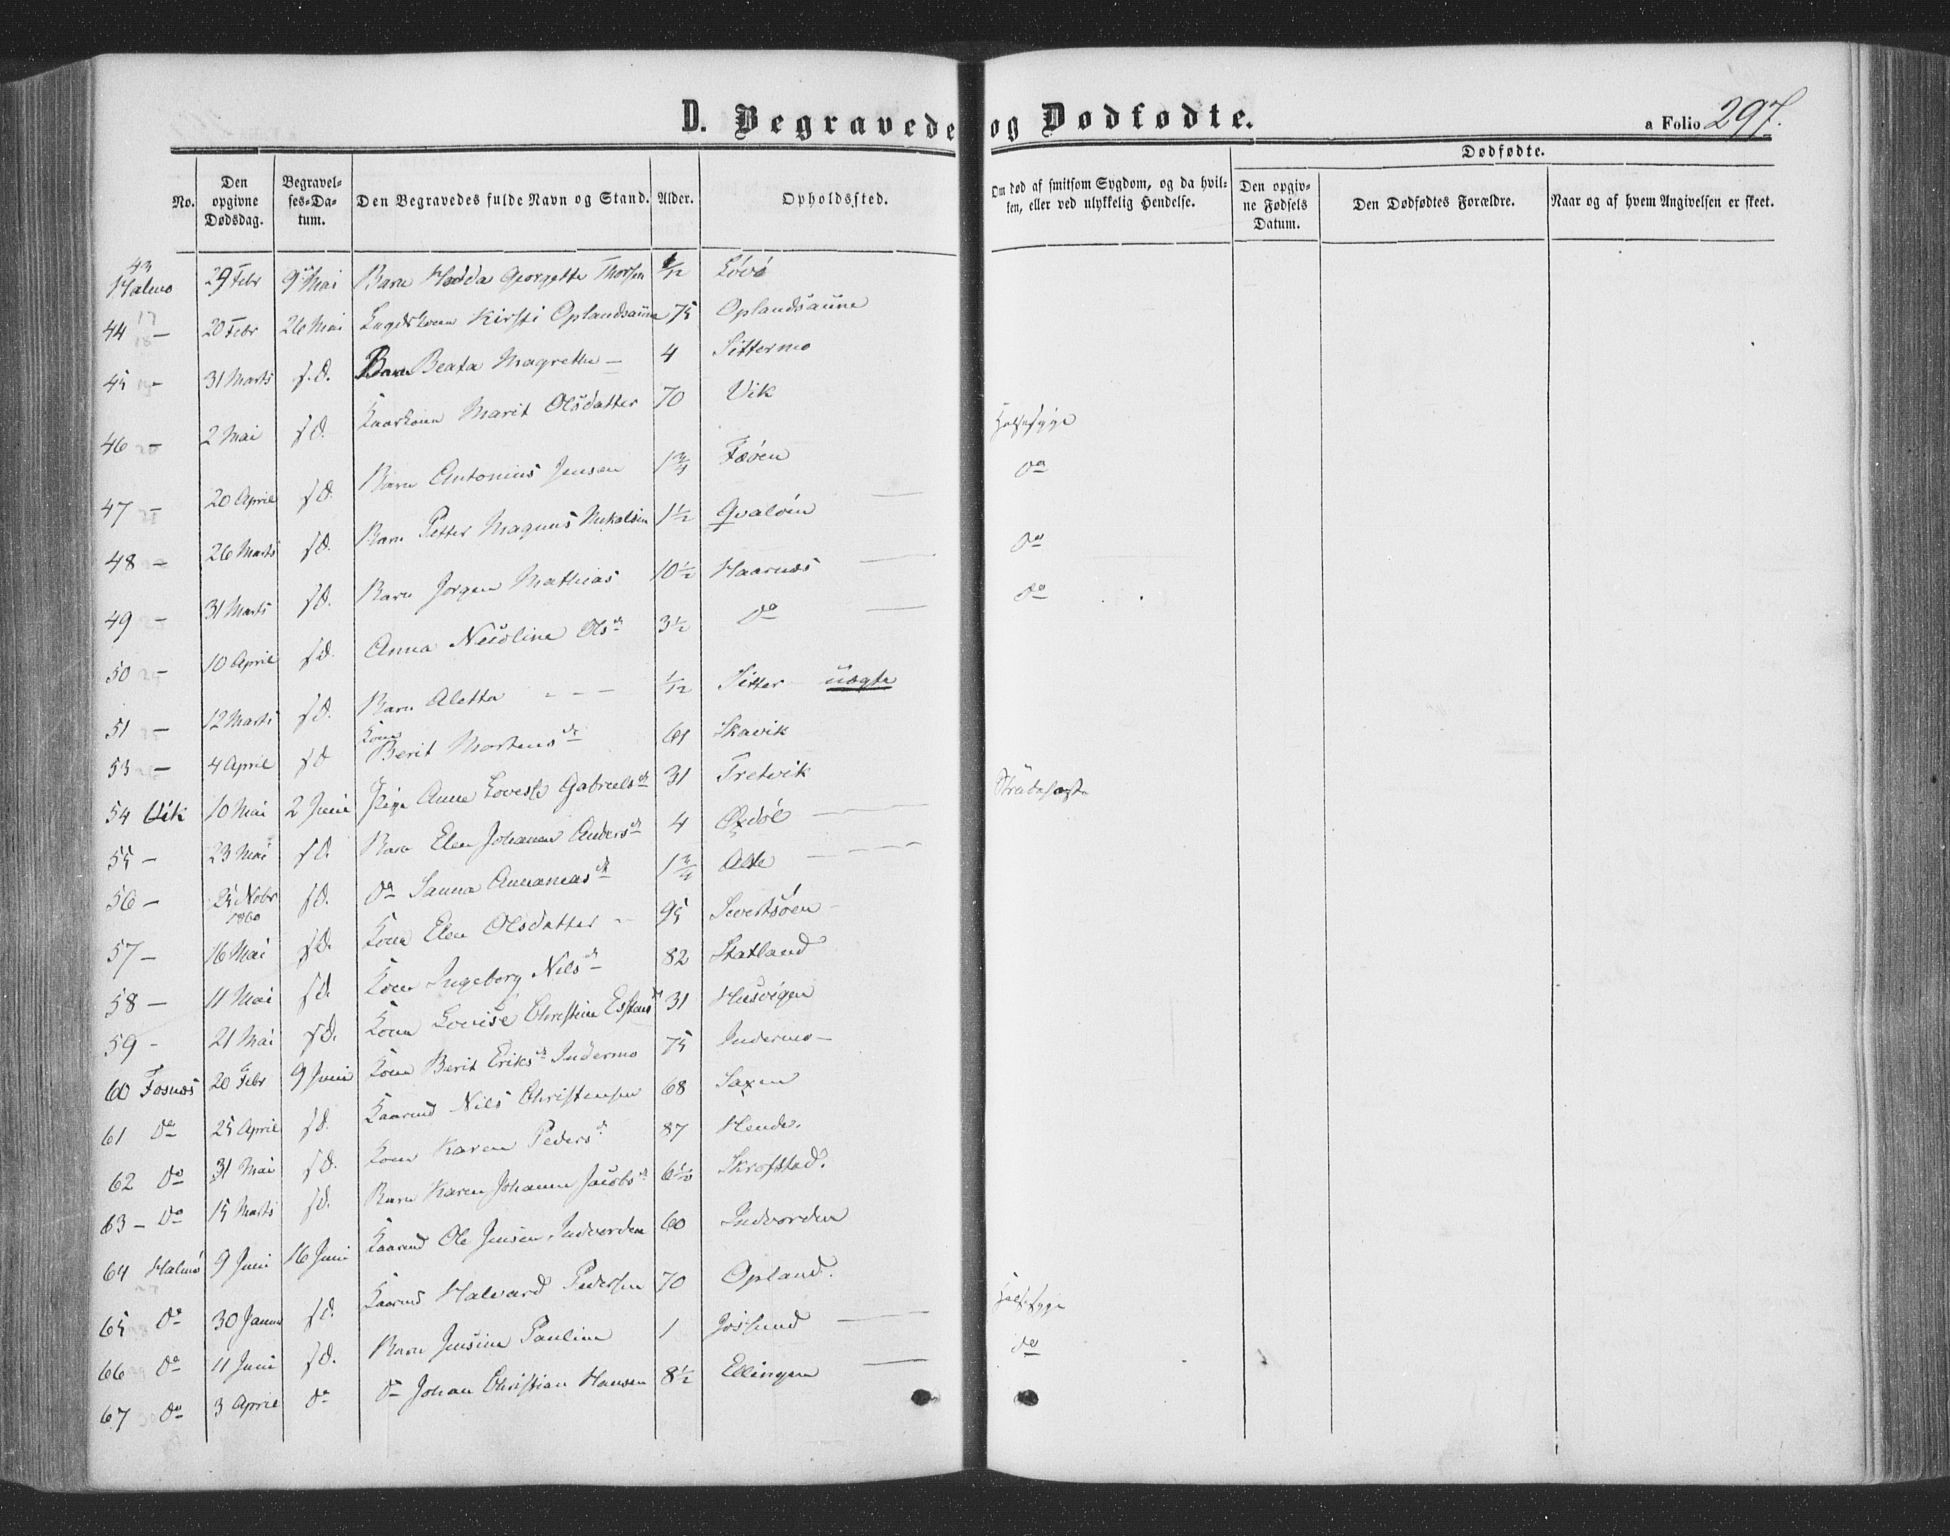 D. Begravede og Dødfødte.
a Folio 297.
No.
Den opgivne Dødsdag.
Begravelses-Datum.
Den Begravedes fulde Navn og Stand.
Alder.
Opholdssted.
Om død af smitsom Sygdom, og da hvilken, eller ved ulykkelig Hendelse.
Dødfødte.
Den opgivne Fødsels Datum.
Den Dødfødtes Forældre.
Naar og af hvem Angivelsen er skeet.
43 29 Febr 9 Mai Barn Georgette Thorsen 1/12 Løvø
44 – 20 Febr 26 Mai Kirsti Oplandsaune 75 Oplandsaune
45 – 31 Marts s.d. Barn Beata Magrethe – 4 Sittermo
46 – 2 Mai s.d. Marit Olsdatter 70 Vik Halssyge
47 – 20 April s.d. Barn Antonius Jensen 1 3/4 Fæøen do
48 – 26 Marts s.d. Barn Petter Magnus Nikolsen 1 1/2 Qvaløen do
49 – 31 Marts s.d. Barn Jørgen Mathias 10 1/2 Haarnæs do
50 – 10 April s.d. Anna Nicoline Olsd 3 1/2 do
51 – 12 Marts s.d. Barn Aletta – – – 1/12 Sitter uægte
53 – 4 April s.d. Kone Berit Mortensd 61 Skavik
54 Vik 10 Mai 2 Juni Pige Anne Lovise Gabrielsd 31 Tretvik
55 – 23 Mai s.d. Barn Elen Johanna Andersd 4 Oxdøl
56 – 25 Nobr 1860 s.d. do Sanna Annaniasd 1 3/4
57 – 16 Mai s.d. Kone Elen Olsdatter 95 Severtsøen
58 – 11 Mai s.d. Kone Ingeborg Nilsd 82 Statland
59 – 21 Mai s.d. Kone Lovise Christine 31 Husvigen
60 Fosnæs 20 Febr 9 Juni Kone Berit Eriksd Indermo 75 Indermo
61 do 25 April s.d. Kaarmd Nils Christensen 68 Saxen
62 do 31 Mai s.d. Kone Karen Pedersd 87
63 – do 15 Marts s.d. Barn Karen Johanne Jacobsd 6 1/2 Skrøfstad.
64 Halmø 9 Juni 16 Juni Kaarmd Ole Jensen Indvorden 60 Indvorden
65 do 30 Januar s.d. Kaarmd Halvard Pedersen 70 Opland.
66 do 11 Juni s.d. Barn Jensine Pauline 1 Jøssund Halssyge
67 do 3 April do do Johan Christian Hansen 8 1/2 Ellingen do